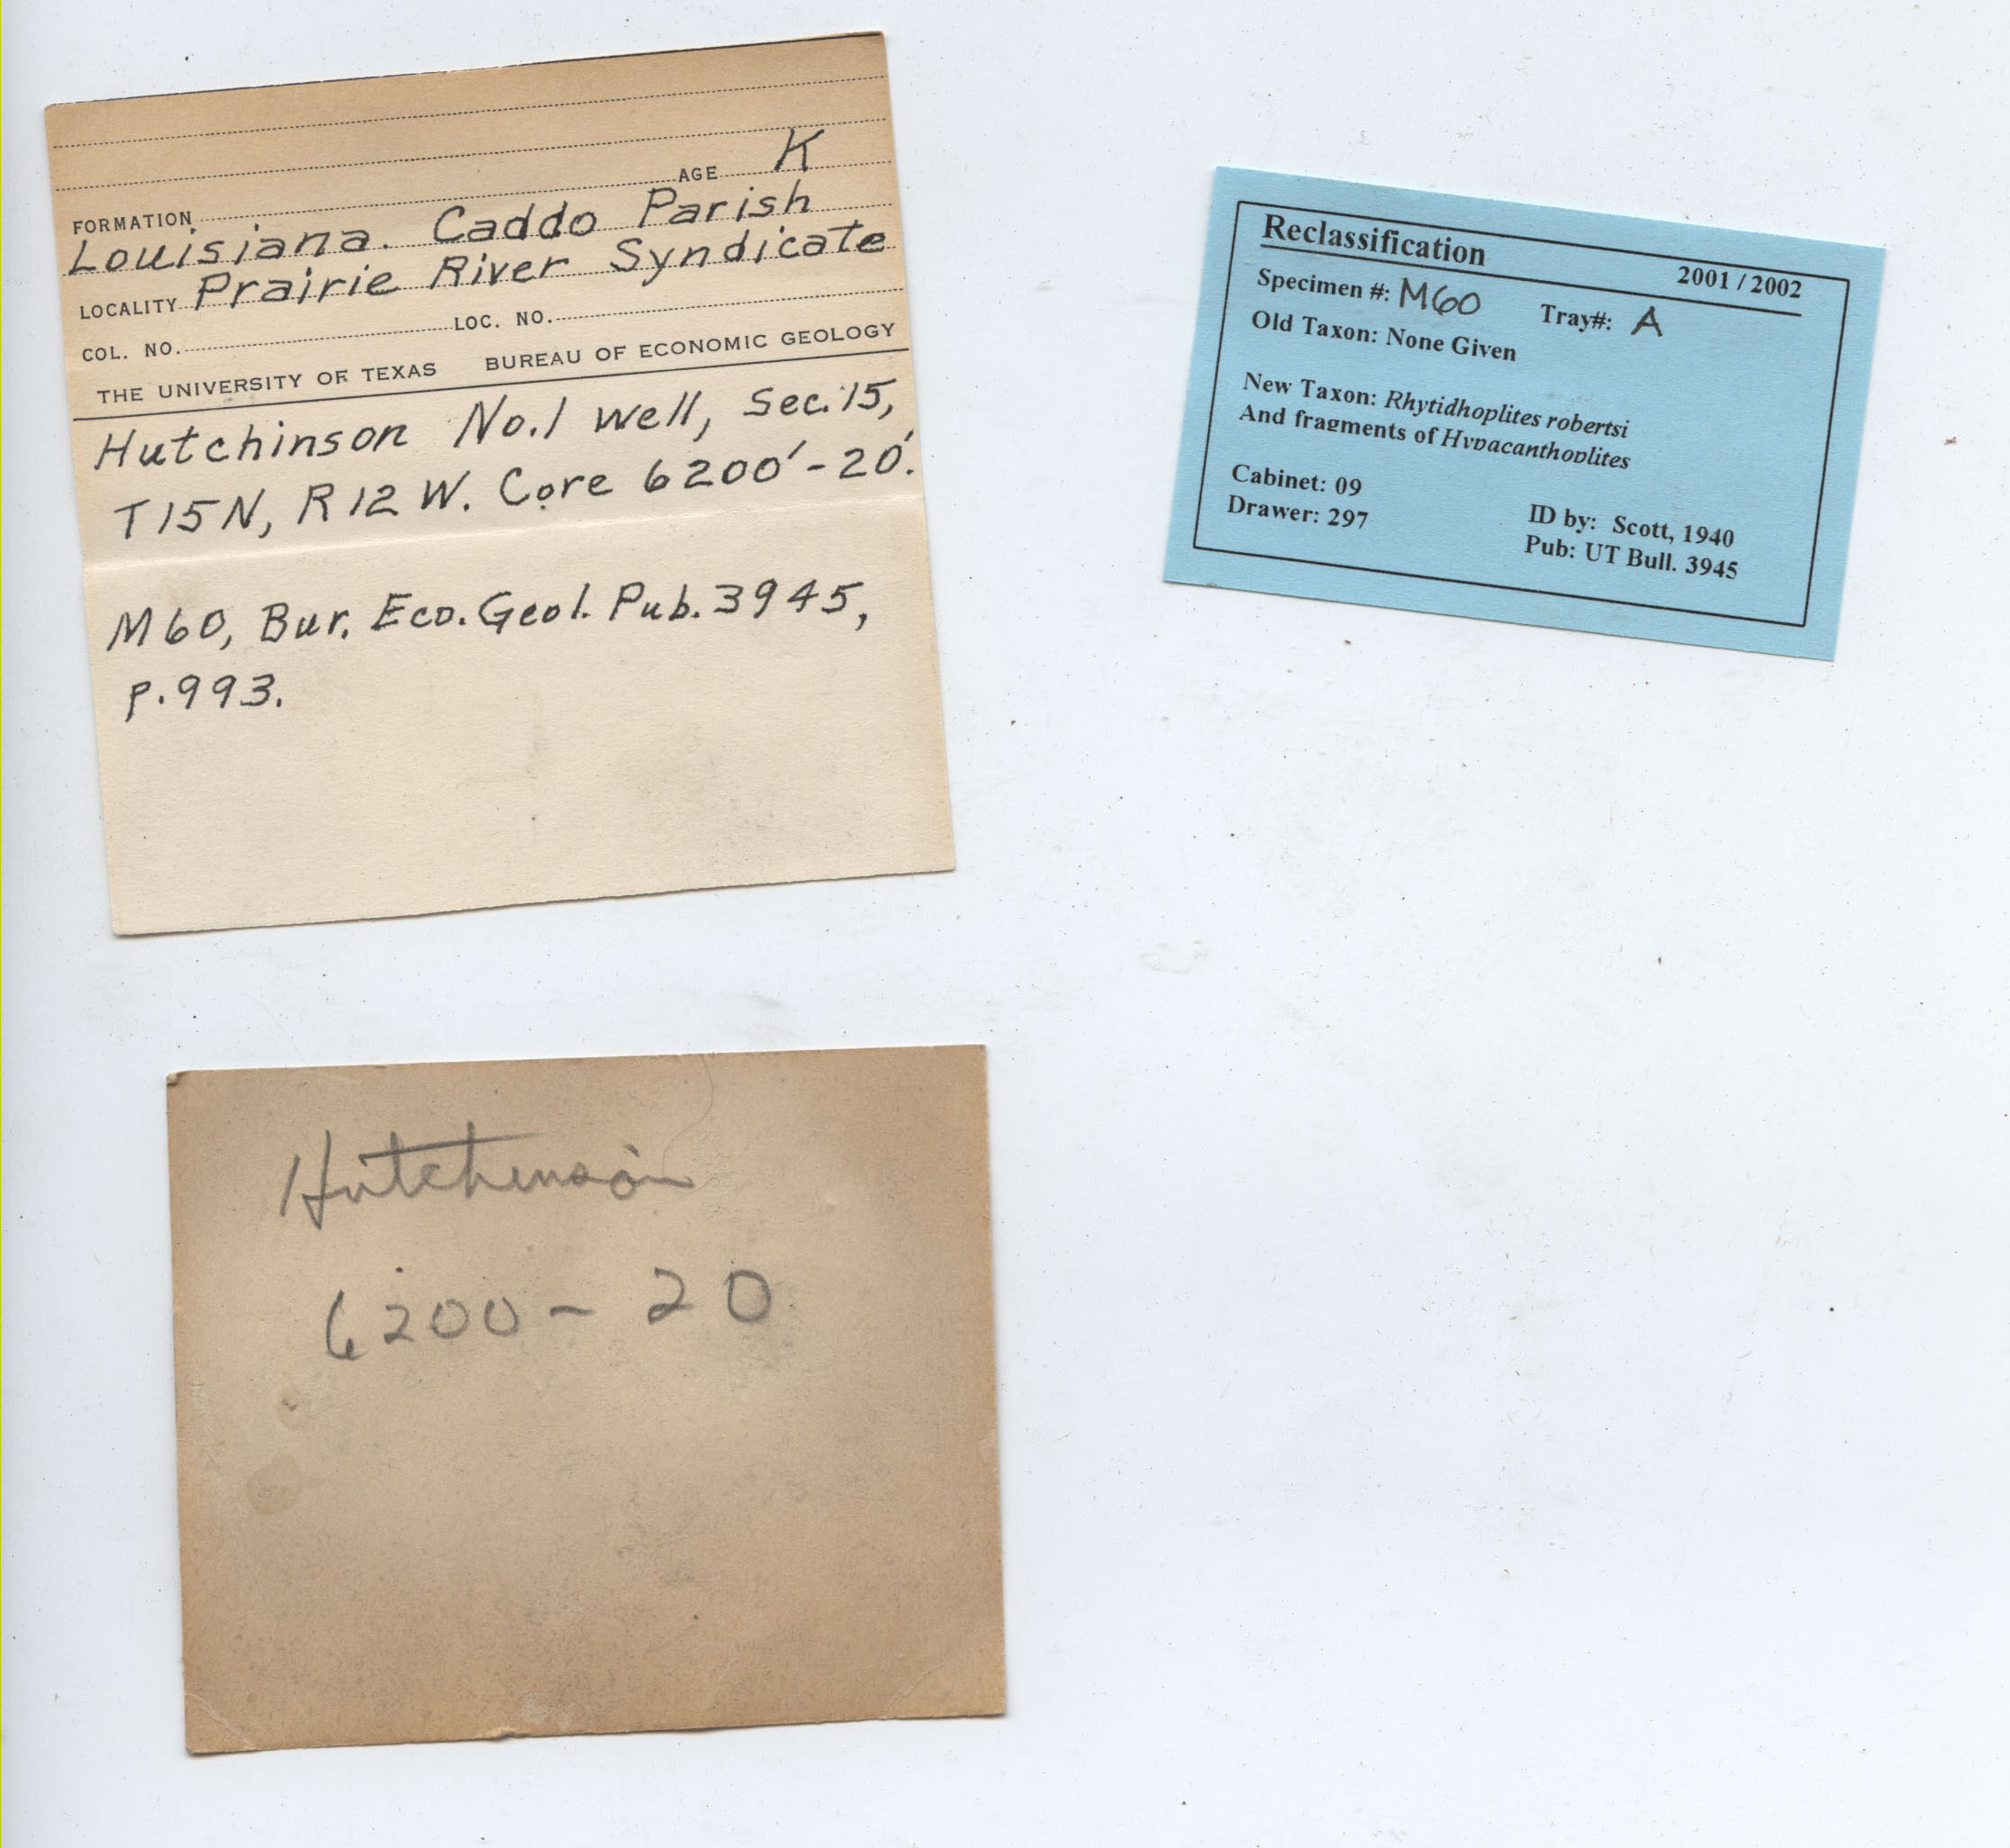 AGE K
FORMATION
Louisiana. Caddo Parish
LOCALITY Prairie River Syndicate
COL. NO. LOC. NO.
THE UNIVERSITY OF TEXAS BUREAU OF ECONOMIC GEOLOGY
Hutchinson No.1 well, Sec.15,
T15N, R12W. Core 6200'-20'.
M60, Bur. Eco. Geol. Pub. 3945,
p.993.
Reclassification
2001 / 2002
Specimen #: M60 Tray#: A
Old Taxon: None Given
New Taxon: Rhytidhoplites robertsi
And fragments of Hypacanthoplites
Cabinet: 09
Drawer: 297
ID by: Scott, 1940
Pub: UT Bull. 3945
Hutchinson
6200 - 20